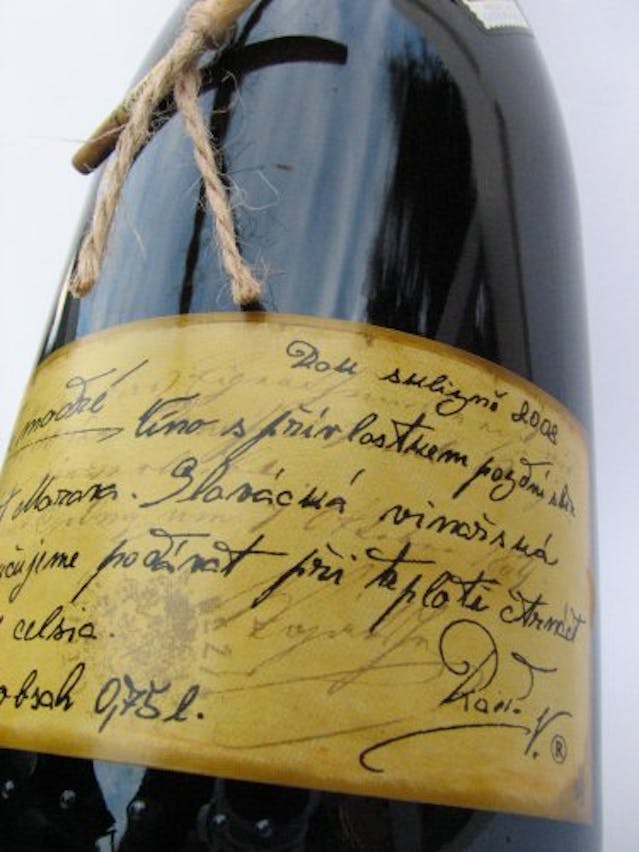 Rok sklizně 2008
modré Víno s přívlastkem pozdní sběr
Morava. Slovácká vinařská
učujeme podávat při teplotě čtrnáct
celsia.
obsah 0,75 l.
®